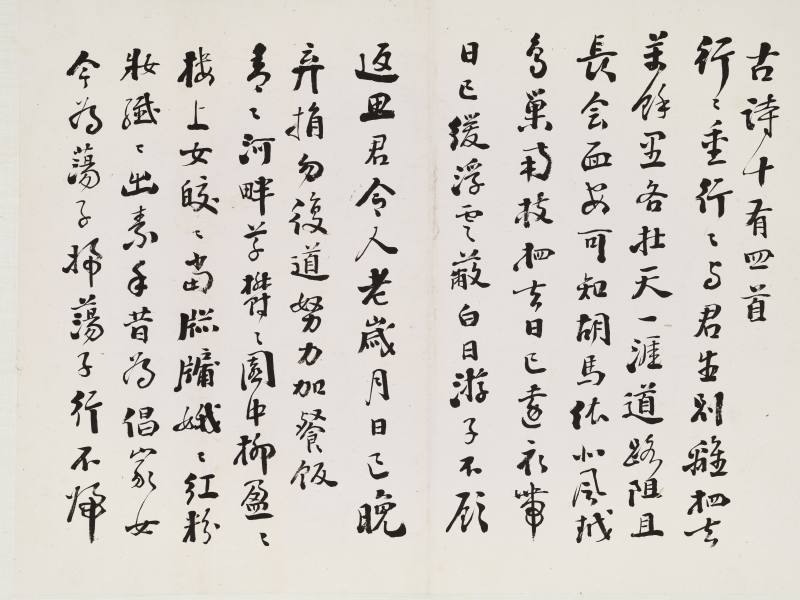 古詩十有四首
行〻重行〻与君生別離相去
萬餘里各在天一涯道路阻且
長会面安可知胡馬依北風越
鳥巢南枝相去日已遠衣帶
日已緩浮雲蔽白日游子不顧
返思君令人老歲月日已晚
弃捐勿復道努力加餐飯
青〻河畔草欝〻園中柳盈〻
樓上女皎〻當牕牖娥〻紅粉
妝纖〻出素手昔為倡家女
今為蕩子婦蕩子行不歸